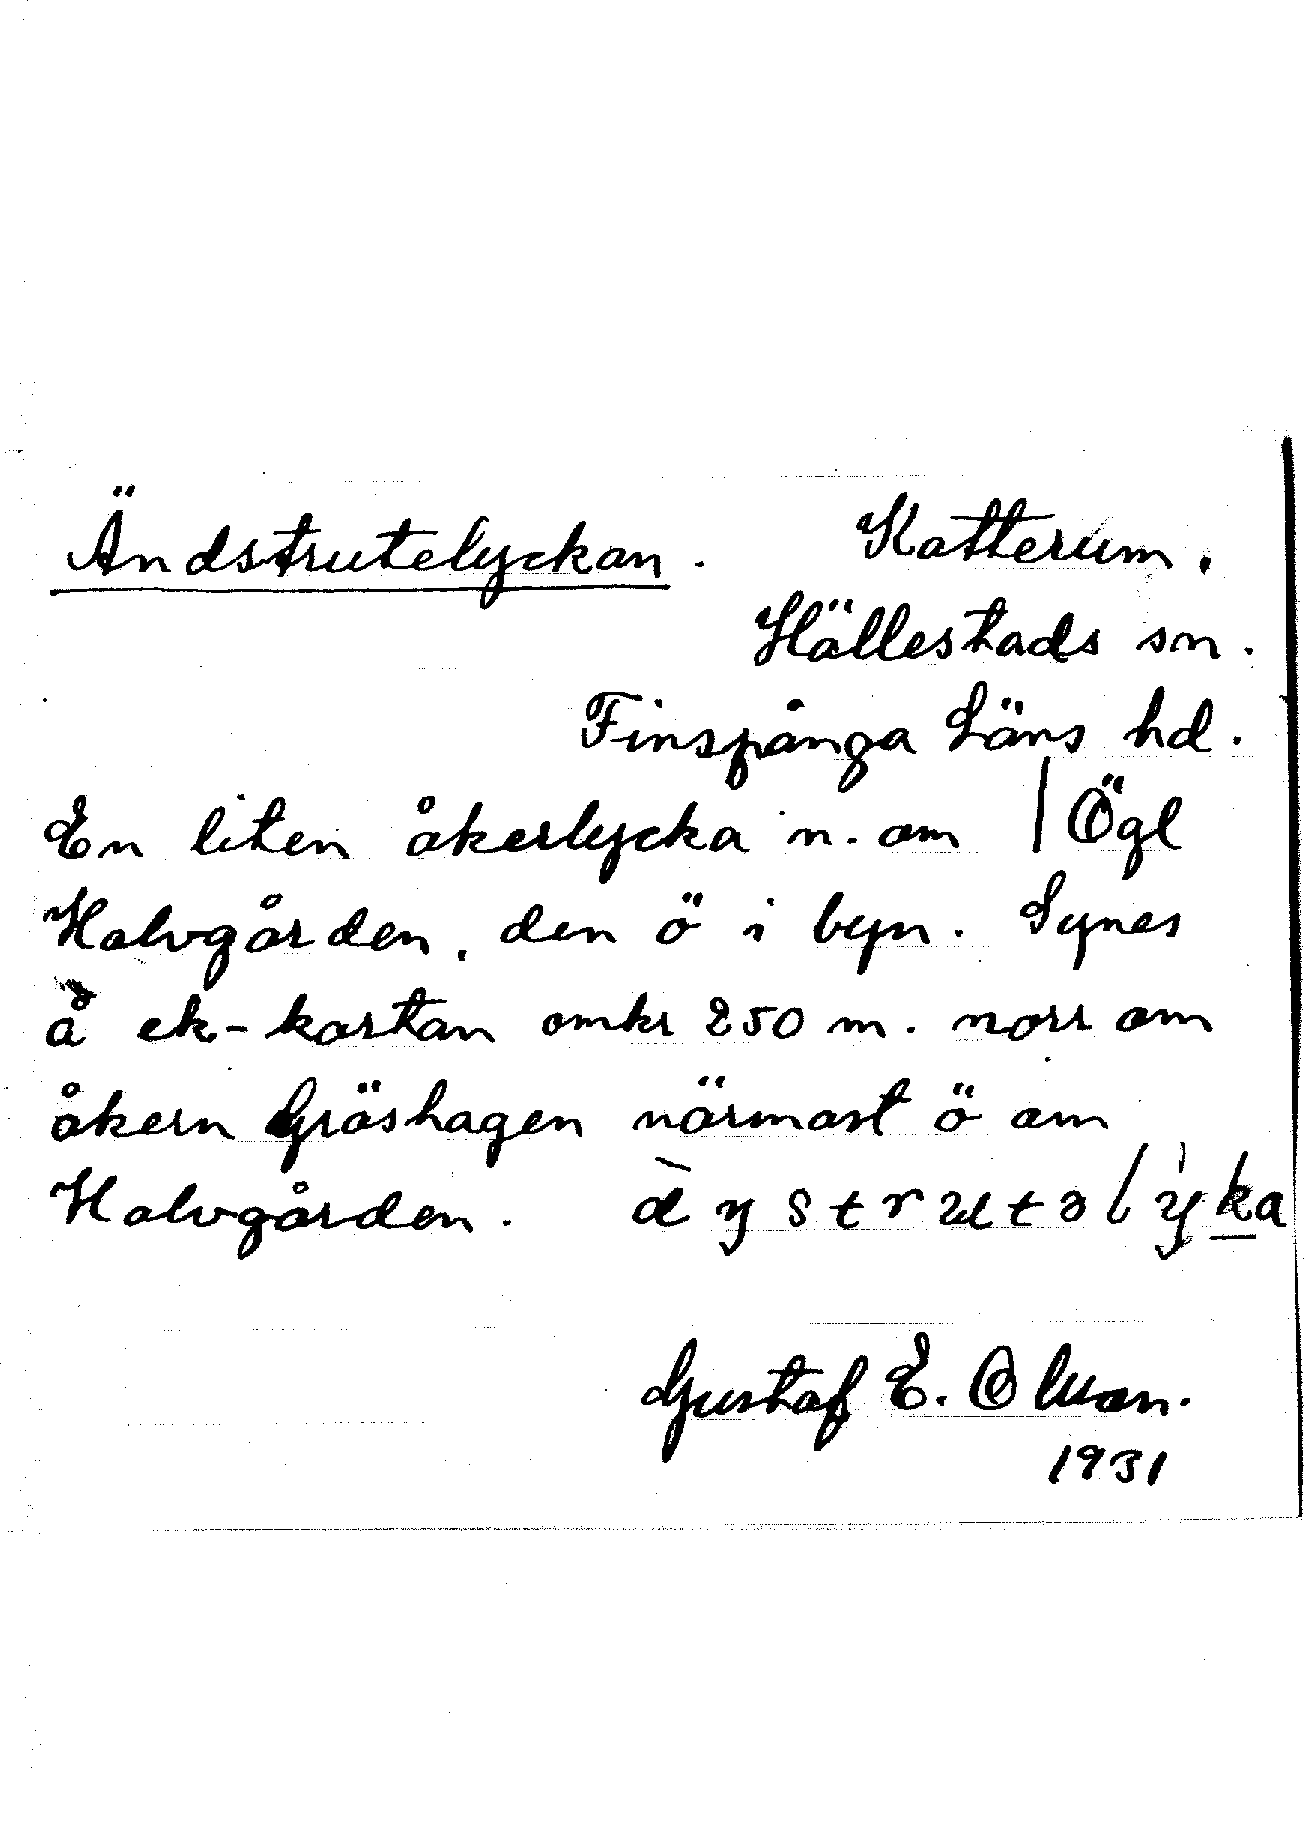 Ändstrutelyckan. Katterum.
Hällestads sn.
Finspånga Läns hd.
En liten åkerlycka n. om | Ögl
Halvgården, den ö i byn. Synes
å ek-kartan omkr 250 m. norr om
åkern Gräshagen närmast ö om
Halvgården.
Gustaf E. Olsson.
1931